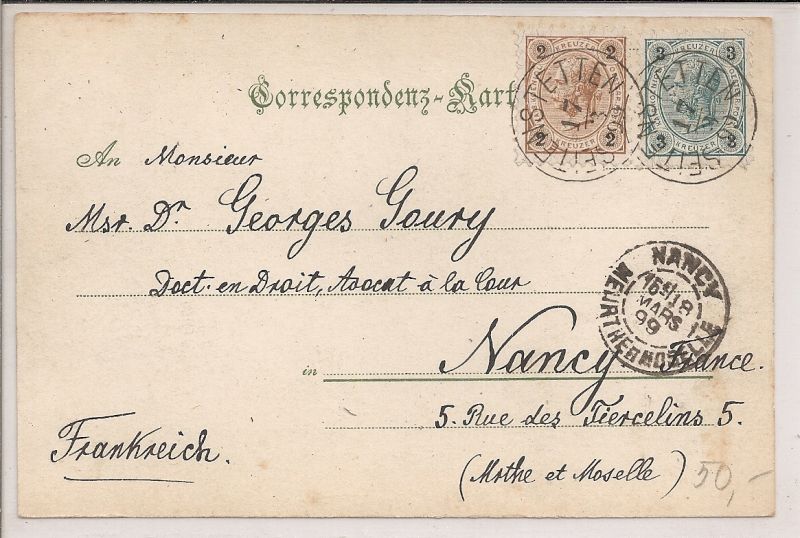 Correspondenz-Kart
2 KREUZER 2
2 2
3 KREUZER 3
3 KREUZER 3
An Monsieur
Msr. Dr Georges Goury
Doct. en Droit, Avocat à la Cour
in Nancy France.
5. Rue des Tiercelins 5.
(Mrthe et Moselle)
Frankreich.
NANCY
18
MARS
99
MEURTHE MOSELLE
50,-